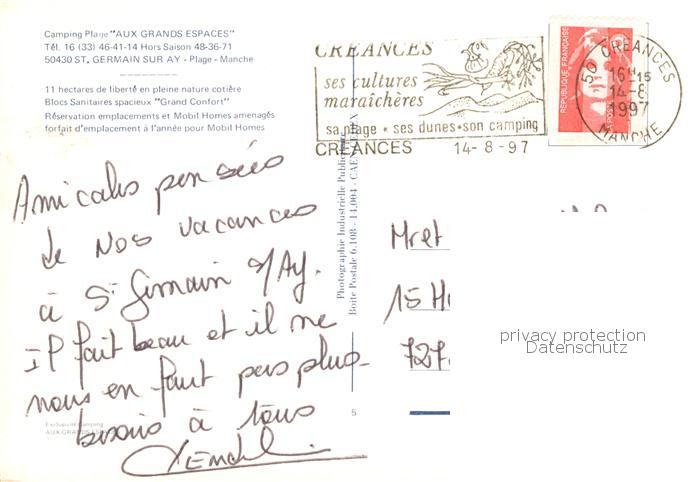 Camping Plage "AUX GRANDS ESPACES"
Tél. 16 (33) 46-41-14 Hors Saison 48-36-71
50430 ST. GERMAIN SUR AY - Plage - Manche
11 hectares de liberté en pleine nature cotière
Blocs Sanitaires spacieux "Grand Confort"
Réservation emplacements et Mobil Homes amenagés
forfait d'emplacement à l'année pour Mobil Homes
CREANCES
ses cultures
maraîchères
sa plage * ses dunes * son camping
CREANCES 14-8-97
REPUBLIQUE FRANÇAISE
50 CREANCES
16H15
14-8
1997
MANCHE
Amicales pensées
de nos vacances
à St Germain s/Ay.
Il fait beau et il ne
nous en faut pas plus-
bisous à tous
Photographie Industrielle
Boite Postale 6.108 - 14.004 - CAEN
Mr et
15
727
privacy protection
Datenschutz
5
Exclusivité Camping
AUX GRANDS